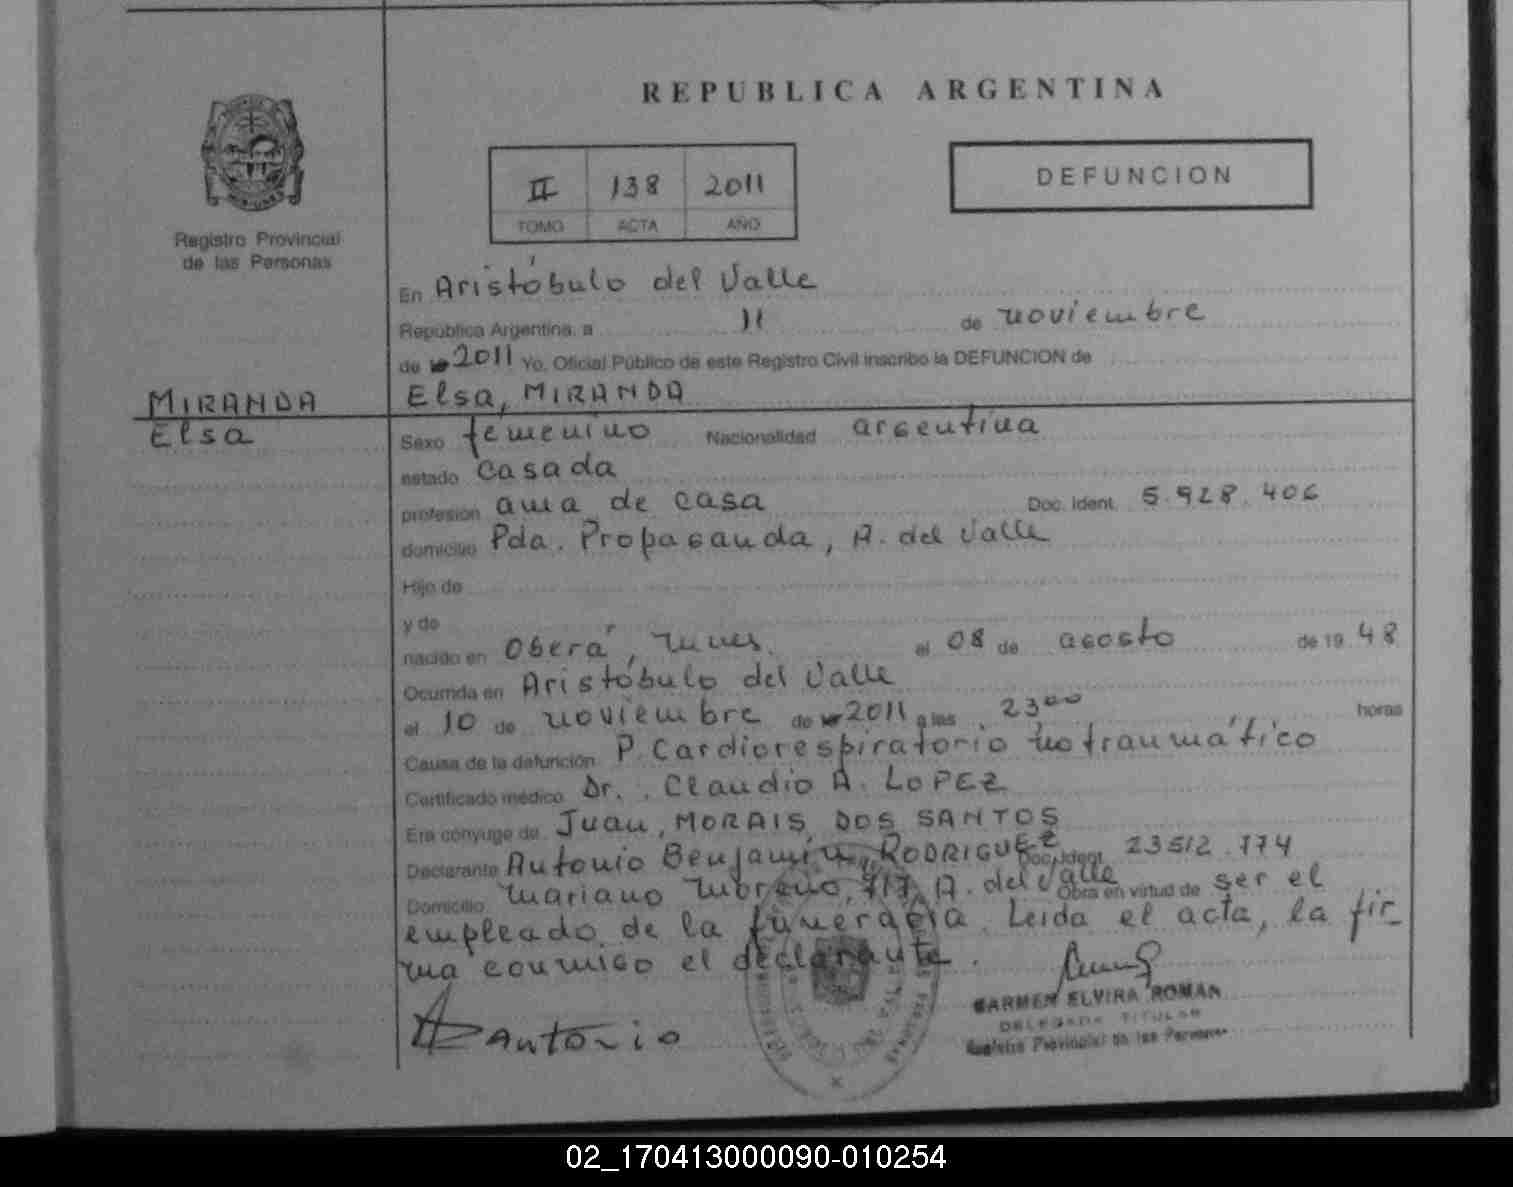 REPUBLICA ARGENTINA
II 138 2011
TOMO ACTA AÑO
DEFUNCION
Registro Provincial
de las Personas
En Aristóbulo del Valle
República Argentina, a 11 de noviembre
de 2011 Yo, Oficial Público de este Registro Civil inscribo la DEFUNCION de
MIRANDA
Elsa
Elsa, MIRANDA
Sexo femenino Nacionalidad argentina
estado casada
profesión ama de casa Doc. Ident. 5.928.406
domicilio Pda. Propaganda, A. del Valle
Hijo de
y de
nacido en Oberá, el 08 de agosto de 19 48
Ocurrida en Aristóbulo del Valle
el 10 de noviembre de 2011 a las 23⁰⁰ horas
Causa de la defunción P. Cardiorespiratorio no traumático
Certificado médico Dr. Claudio A. LOPEZ
Era cónyuge de Juan, MORAIS DOS SANTOS
Declarante Antonio Benjamín, RODRIGUEZ Doc. Ident. 23512.774
Domicilio Mariano Moreno, 717, A. del Valle Obra en virtud de ser el
empleado de la funeraria. Leida el acta, la fir
ma conmigo el declarante.
Antonio
CARMEN ELVIRA ROMAN
DELEGADA TITULAR
Registro Provincial de las Personas
02_170413000090-010254